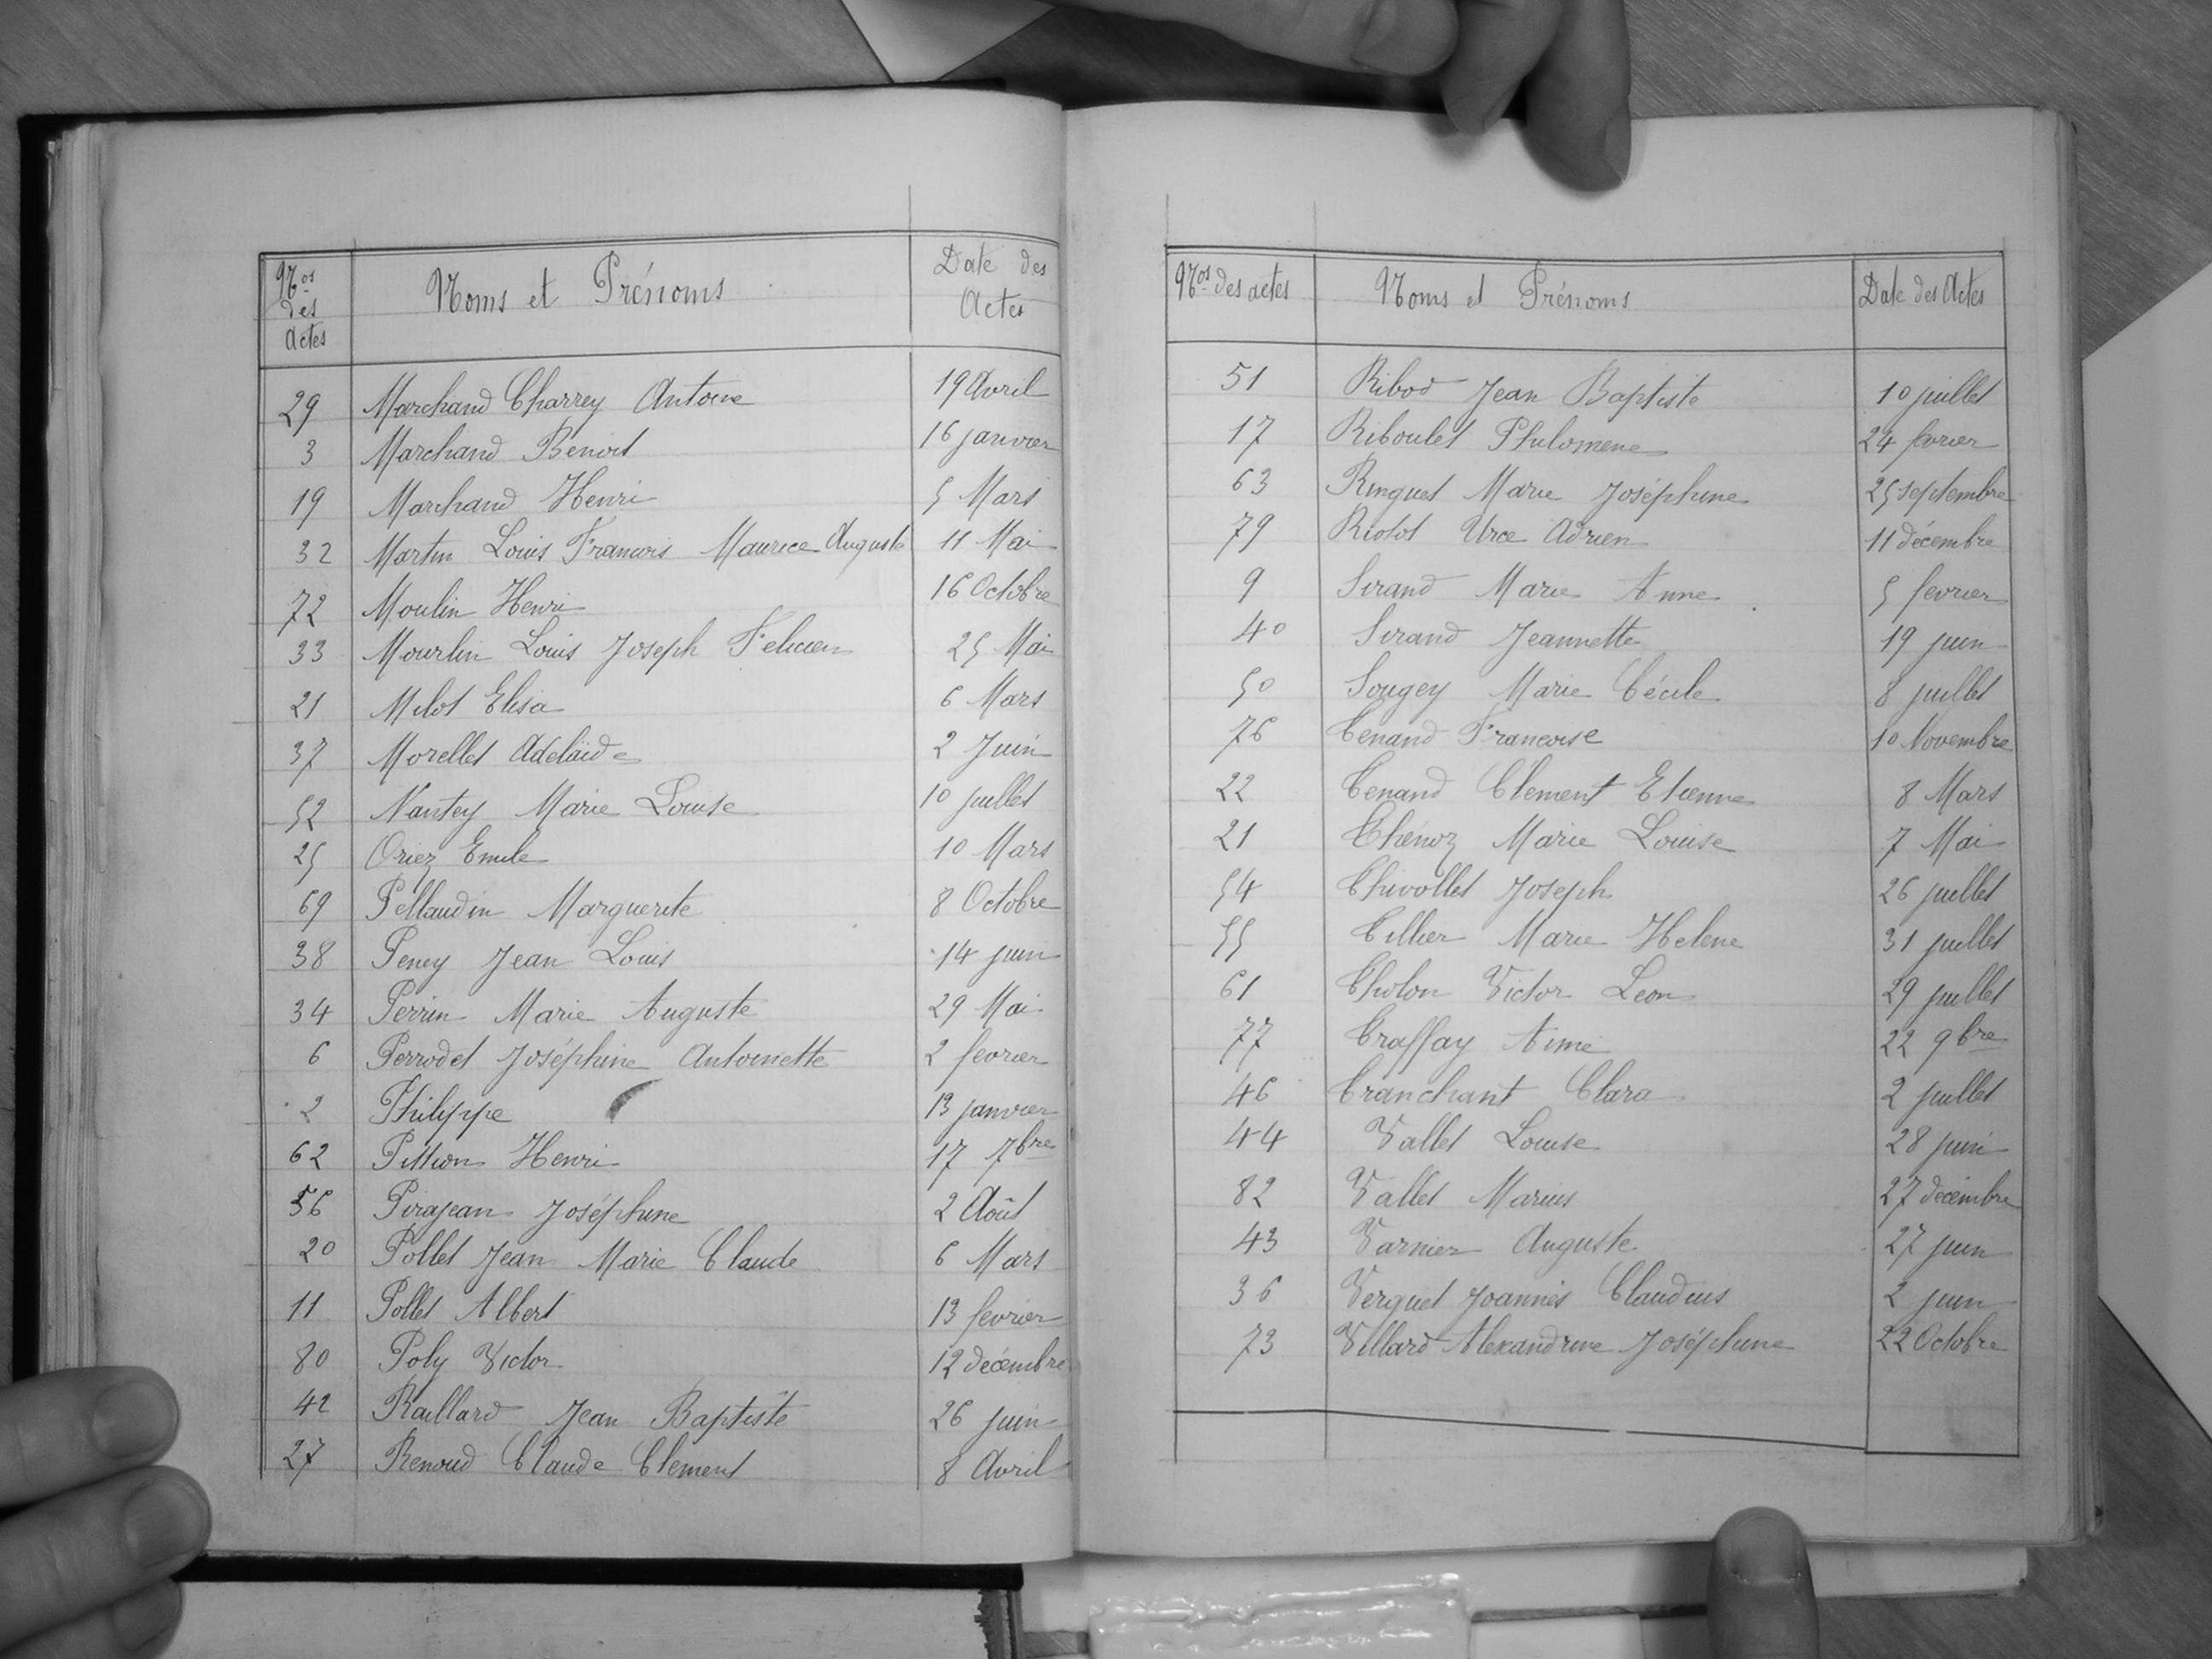 Nos des Actes Noms et Prénoms Date des Actes
29 Marchand Charrey Antoine 19 Avril
3 Marchand Benoit 16 janvier
19 Marchand Henri 5 Mars
32 Martin Louis Francois Maurice Auguste 11 Mai
72 Moulin Henri 16 Octobre
33 Mourlin Louis Joseph Felicien 25 Mai
21 Milot Elisa 6 Mars
37 Morellet Adelaïde 2 Juin
52 Nantey Marie Louise 10 juillet
25 Oriez Emile 10 Mars
69 Pellaudin Marguerite 8 Octobre
38 Peney Jean Louis 14 juin
34 Perrin Marie Auguste 29 Mai
6 Perrodet Joséphine Antoinette 2 fevrier
2 Philippe 13 janvier
62 Pittion Henri 17 7bre
56 Pirajean Joséphine 2 Août
20 Pollet Jean Marie Claude 6 Mars
11 Pollet Albert 13 fevrier
80 Poly Victor 12 decembre
42 Raillard Jean Baptiste 26 juin
27 Renoud Claude Clement 8 Avril
Nos des actes Noms et Prénoms Date des Actes
51 Ribod Jean Baptiste 10 juillet
17 Riboulet Philomene 24 fevrier
63 Ringuet Marie Joséphine 25 septembre
79 Riotot Adrien 11 décembre
9 Sirand Marie Anne 5 fevrier
40 Sirand Jeannette 19 juin
50 Sougey Marie Cécile 8 juillet
76 Tenand Francoise 10 Novembre
22 Tenand Clement Etienne 8 Mars
21 Thénoz Marie Louise 7 Mai
54 Thivollet Joseph 26 juillet
55 Tillier Marie Helene 31 juillet
61 Tholon Victor Leon 29 juillet
77 Traffay Aimé 22 9bre
46 Tranchant Clara 2 juillet
44 Vallet Louise 28 juin
82 Vallet Marius 27 decembre
43 Varnier Auguste 27 juin
36 Verguet Joannès Claudius 2 juin
73 Villard Alexandrine Joséphine 22 Octobre